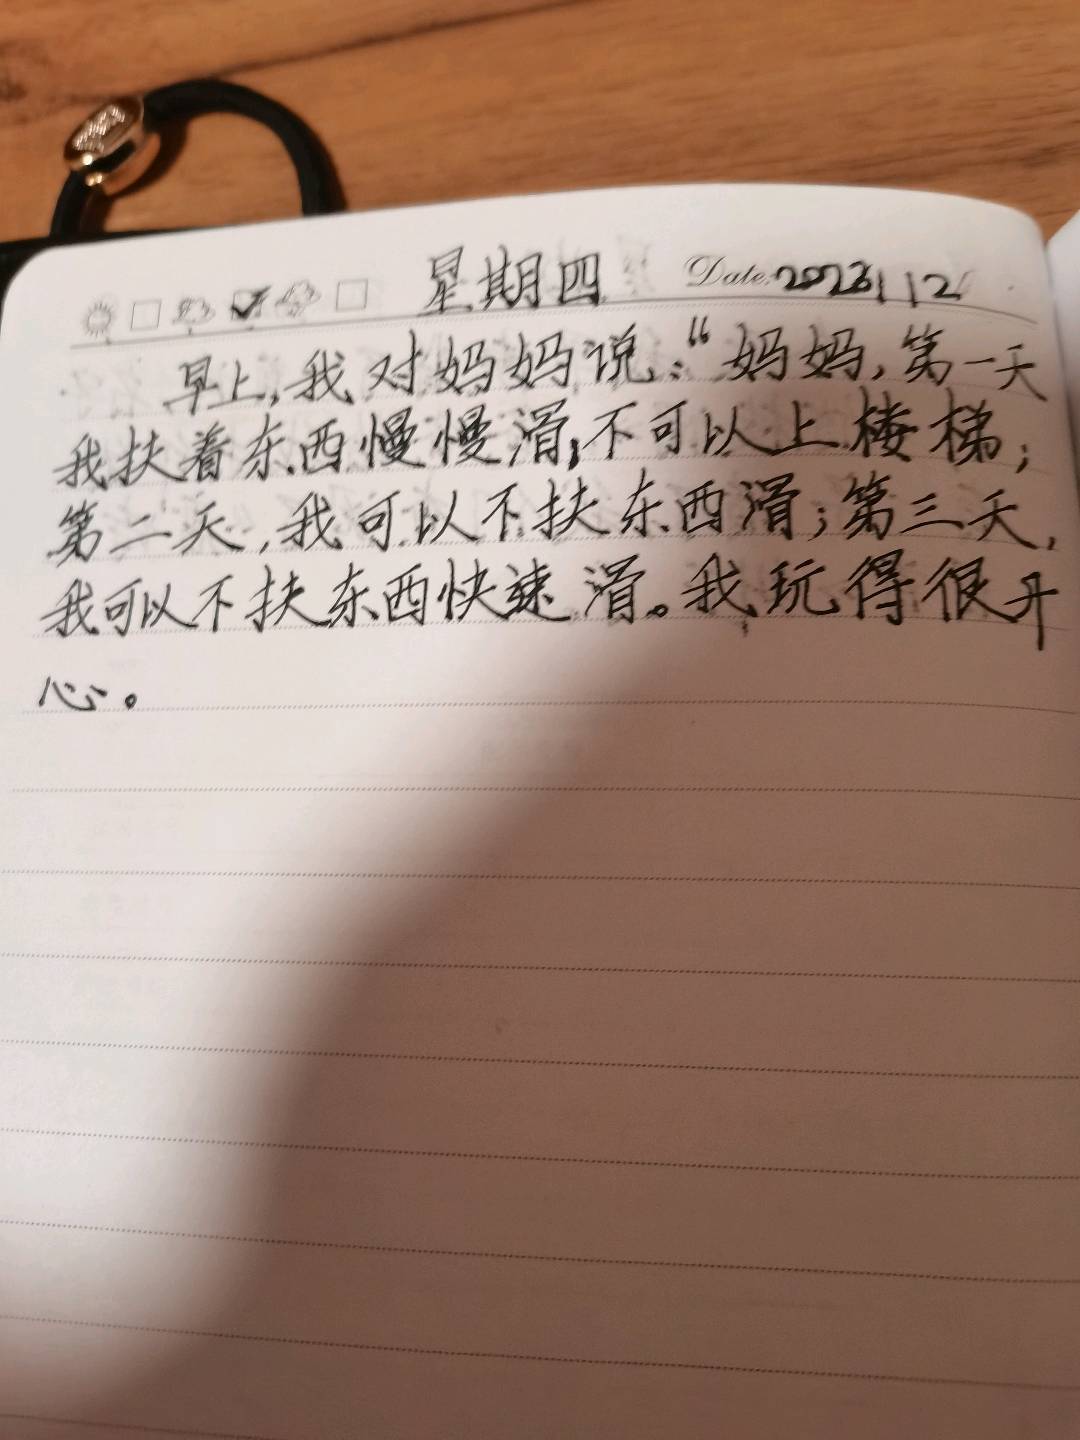 星期四 Date. 2023 1 12
早上,我对妈妈说:“妈妈,第一天
我扶着东西慢慢滑,不可以上楼梯;
第二天,我可以不扶东西滑;第三天,
我可以不扶东西快速滑。我玩得很开
心。